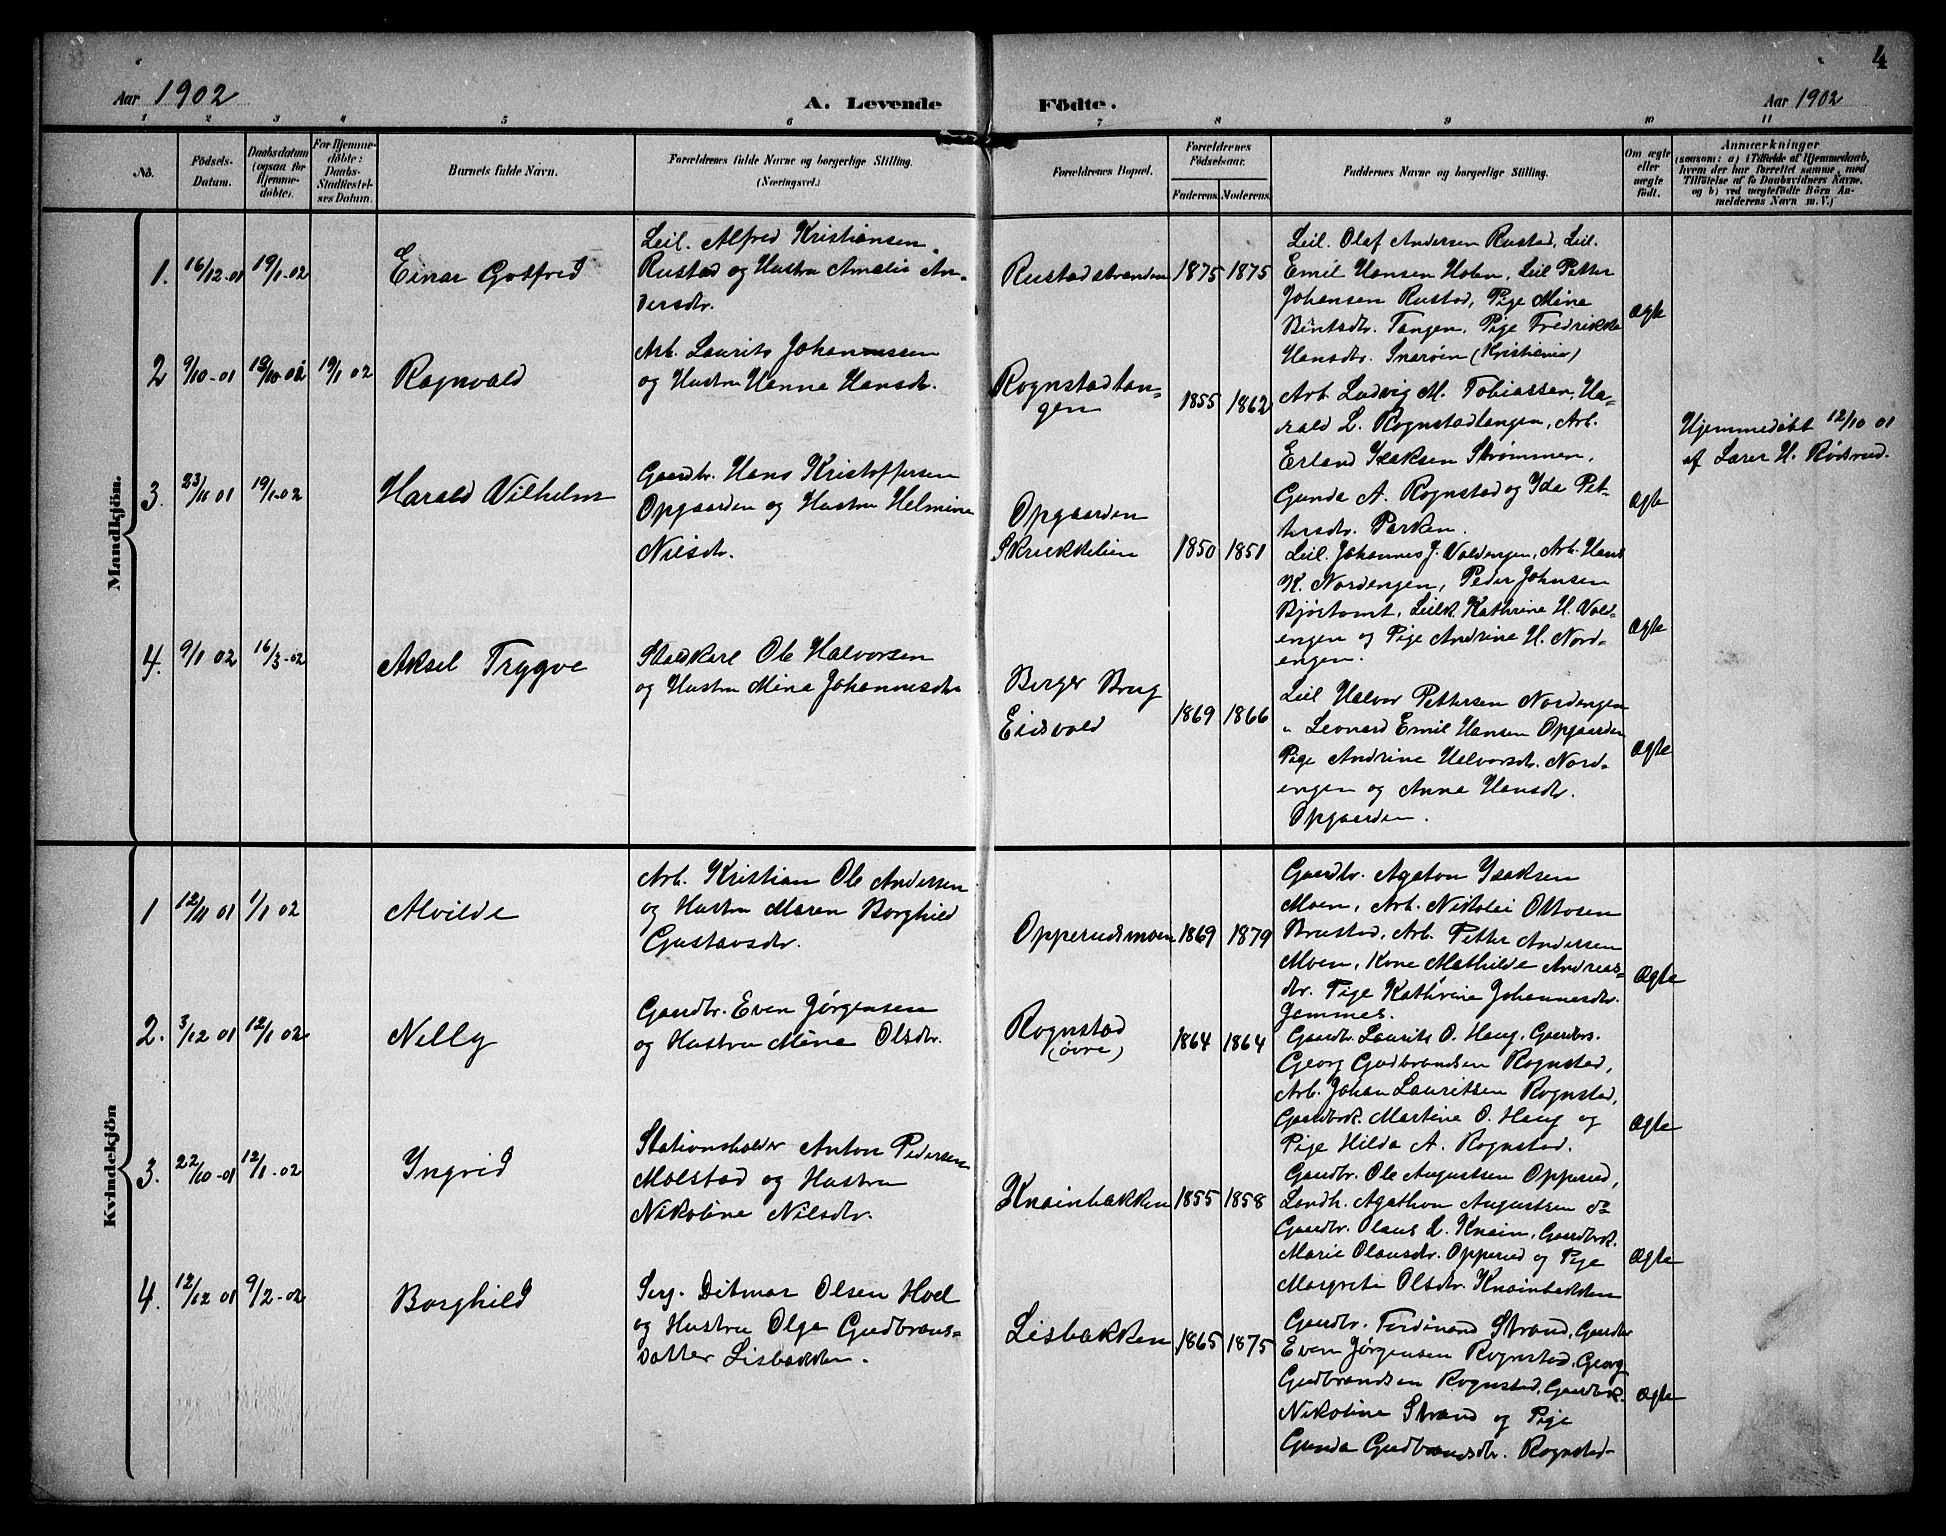 4
Aar 1902
A. Levende
Födte.
Aar 1902
1 2 3 4 5 6 7 8 9 10 11
No.
Födsels-
Datum.
Daabsdatum
(ogsaa for
Hjemme-
døbte).
For Hjemme-
døbte:
Daabs-
Stadfæstel-
ses Datum.
Barnets fulde Navn.
Forældrenes fulde Navne og borgerlige Stilling.
(Næringsvei.)
Forældrenes Bopæl.
Forældrenes
Födselsaar.
Faderens. Moderens.
Faddernes Navne og borgerlige Stilling.
Om ægte
eller
uægte
födt.
Anmærkninger
(saasom: a) i Tilfælde af Hjemmedaab,
hvem der har forrettet samme, med
Tilföielse af to Daabsvidners Navne,
og b) ved uægtefödte Börn An-
melderens Navn m. V.)
Mandkjön.
1. 16/12-01 19/1-02
Einar Gotfred
Leil. Alfred Kristiansen
Rustad og Hustru Amalie An-
dersdtr.
Rustadstranden 1875 1875
Leil. Olaf Andersen Rustad, Leil.
Emil Hansen Holm, Leil Petter
Johansen Rustad, Pige Mina
Berntsdtr. Tangen, Pige Fredrikke
Hansdtr. Snarøen (Kristiania)
Ægte
2 9/10-01 12/10 01 19/1 02
Ragnvald
Arb. Laurits Johannessen
og Hustru Hanna Hansdtr.
Rognstadtan-
gen
1855 1862
Arb. Ludvig M. Tobiassen, Ha-
rald L. Rognstadtangen, Arb.
Erland Isaksen Strømmen,
Gunda A. Rognstad og Ida Pet-
tersdtr. Parken.
Ægte
Hjemmedøbt 12/10 01
af Lærer H. Rødsrud.
3. 23/11 01 19/1-02
Harald Vilhelm
Gaardbr. Hans Kristoffersen
Opgaarden og Hustru Helmine
Nilsdtr.
Opgaarden
Skrukkelien
1850 1851
Leil. Johannes J. Valdengen, Arb. Hans
K. Nordengen, Peder Johnsen
Bjøstomt, Leilk. Kathrine H. Vald-
engen og Pige Andrine H. Nord-
engen.
Ægte
4. 9/1 02 16/3-02
Aksel Trygve
Staldkarl Ole Halvorsen
og Hustru Mina Johannesdtr
Berger Brug
Eidsvold
1869 1866
Leil Halvor Pettersen Nordengen
" Leonard Emil Hansen Opgaarden
Pige Andrine Halvorsdtr. Nord-
engen og Anna Hansdtr.
Opgaarden.
Ægte
Kvindekjön
1 12/11 01 1/1 02
Alvilde
Arb. Kristian Ole Andersen
og Hustru Maren Borghild
Gustavsdtr.
Opperudsmoen 1869 1879
Gaardbr. Agaton Isaksen
Moen, Arb. Nikolai Ottosen
Brustad, Arb. Petter Andersen
Moen, Kone Mathilde Andreas-
dtr. Pige Kathrine Johannesdtr.
Jammes.
Ægte
2. 3/12 01 12/1 02
Nelly
Gaardbr. Even Jørgensen
og Hustru Mina Olsdtr.
Rognstad
(øvre)
1864 1864
Gaardbr. Laurits O. Haug, Gaardbrs.
Georg Gudbrandsen Rognstad,
Arb. Johan Lauritsen Rognstad,
Gaardbrk. Martine O. Haug og
Pige Hilda A. Rognstad.
Ægte
3. 22/10-01 12/1-02
Ingrid
Stationsholder Anton Pedersen
Molstad og Hustru
Nikoline Nilsdtr.
Knainbakken 1855 1858
Gaardbr. Ole Augustsen Opperud,
Landh. Agathon Augustsen do
Gaardbr. Olaus L. Knain, Gaardbrk.
Marie Olausdtr. Opperud og Pige
Margrete Olsdtr. Knainbakken
Ægte
4. 12/12 01 9/2-02
Borghild
Serg. Ditmar Olsen Hoel
og Hustru Olga Gudbrans-
datter Lisbakken.
Lisbakken 1865 1875
Gaardbr. Ferdinand Strand, Gaardbr
Even Jørgensen Rognstad, Georg
Gudbrandsen Rognstad, Gaardbrk.
Nikoline Strand og Pige
Gunda Gudbrandsdtr. Rognstad-
Ægte